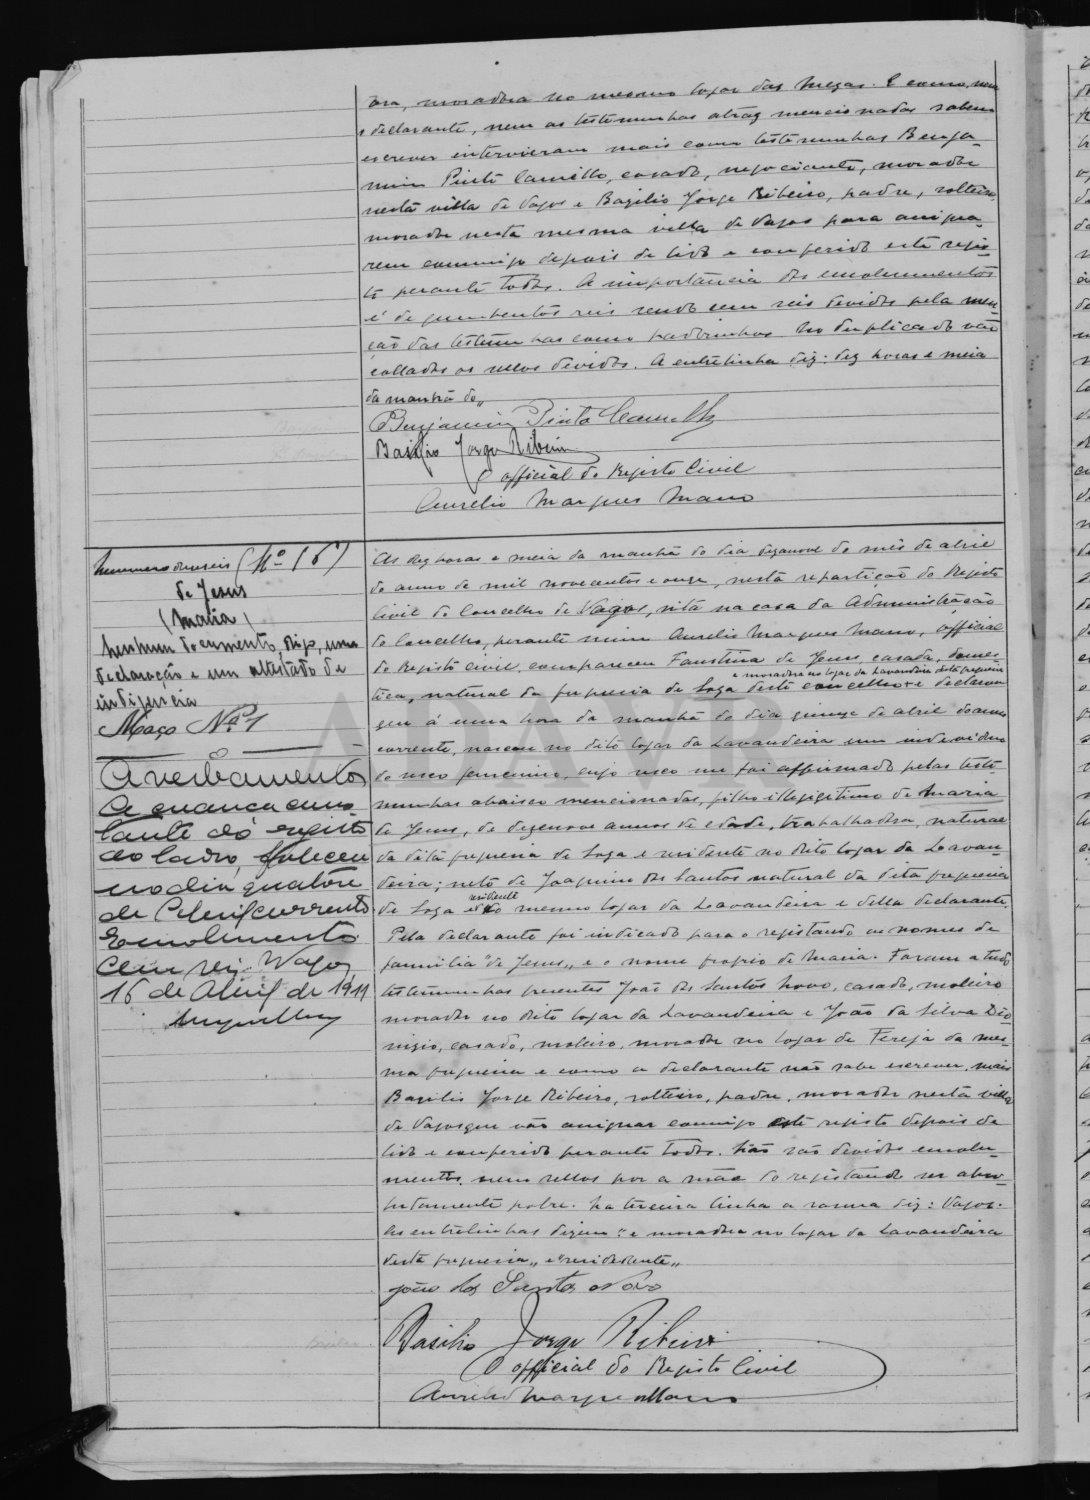 ora, moradora no mesmo logar das Mezas. E como, nem
a declarante, nem as testemunhas atraz mencionadas sabem
escrever intervieram mais como testemunhas Benja-
mim Pinto Camello, casado, negociante, morador
nesta villa de Vagos e Bazilio Jorge Ribeiro, padre, solteiro,
morador nesta mesma villa de Vagos para assigna-
rem commigo depois de lido e conferido este regis-
to perante todos. A importancia dos emolumentos
é de quinhentos reis sendo cem reis devidos pela men-
ção das testemunhas como padrinhos. No duplicado vão
collados os sellos devidos. A entrelinha diz: dez horas e meia
da manhã do,,
Benjamim Pinto Camello
Basilio Jorge Ribeiro
O official do Registo Civil
Aurelio Marques Mano
Numero dezeseis (Nº 16)
de Jesus
(Maria)
Nenhum documento, digo, uma
declaração e um attestado de
indigencia
Maço Nº 1
Averbamento
A creança cons-
tante do registo
ao lado, falleceu
no dia quatorze
de Abril corrente
Emolumento
Cem reis. Vagos,
16 de Abril de 1911
As dez horas e meia da manhã do dia dezanove do mês de abril
do anno de mil novecentos e onze, nesta repartição do Registo
Civil do Concelho de Vagos, sita na casa da Administração
do Concelho, perante mim Aurelio Marques Mano, official
do Registo civil compareceu Faustina de Jesus, casada, domes-
e moradora no logar da Lavandeira desta freguesia
tica, natural da freguesia de Soza deste concelho e declarou
que á uma hora da manhã do dia quinze de abril do anno
corrente, nasceu no dito logar da Lavandeira um individuo
do sexo femenino, cujo sexo me foi affirmado pelas teste-
munhas abaixo mencionadas, filho illegitimo de Maria
de Jesus, de dezenove annos de edade, trabalhadora, natural
da dita freguesia de Soza e residente no dito logar da Lavan-
deira; neto de Joaquim dos Santos natural da dita freguesia
residente
de Soza e no mesmo logar da Lavandeira e della declarante.
Pela declarante foi indicado para o registando os nomes de
familia "de Jesus,, e o nome proprio de Maria. Foram a tudo
testemunhas presentes João dos Santos Novo, casado, moleiro
morador no dito logar da Lavandeira e João da Silva Dio-
nizio, casado, moleiro, morador no logar de Fereja da mes-
ma freguesia e como a declarante não sabe escrever, mais
Bazilio Jorge Ribeiro, solteiro, padre, morador nesta villa
de Vagos que vão assignar commigo este registo depois de
lido e conferido perante todos. Não são devidos emolu-
mentos nem sellos por a mãe do registando ser abso-
lutamente pobre. Na terceira linha a rasura diz: Vagos.
As entrelinhas dizem: "e moradora no logar da Lavandeira
desta freguesia,, e "residente,,
João dos Santos Novo
Basilio Jorge Ribeiro
O official do Registo Civil
Aurelio Marques Mano
ADAVR